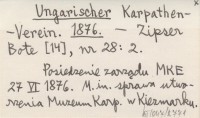 Ungarischer Karpathen-
-Verein. 1876. — Zipser
Bote [14], nr 28: 2.
Posiedzenie zarządu MKE
27 VI 1876. M. in. sprawa utwo-
rzenia Muzeum Karp. w Kieżmarku.